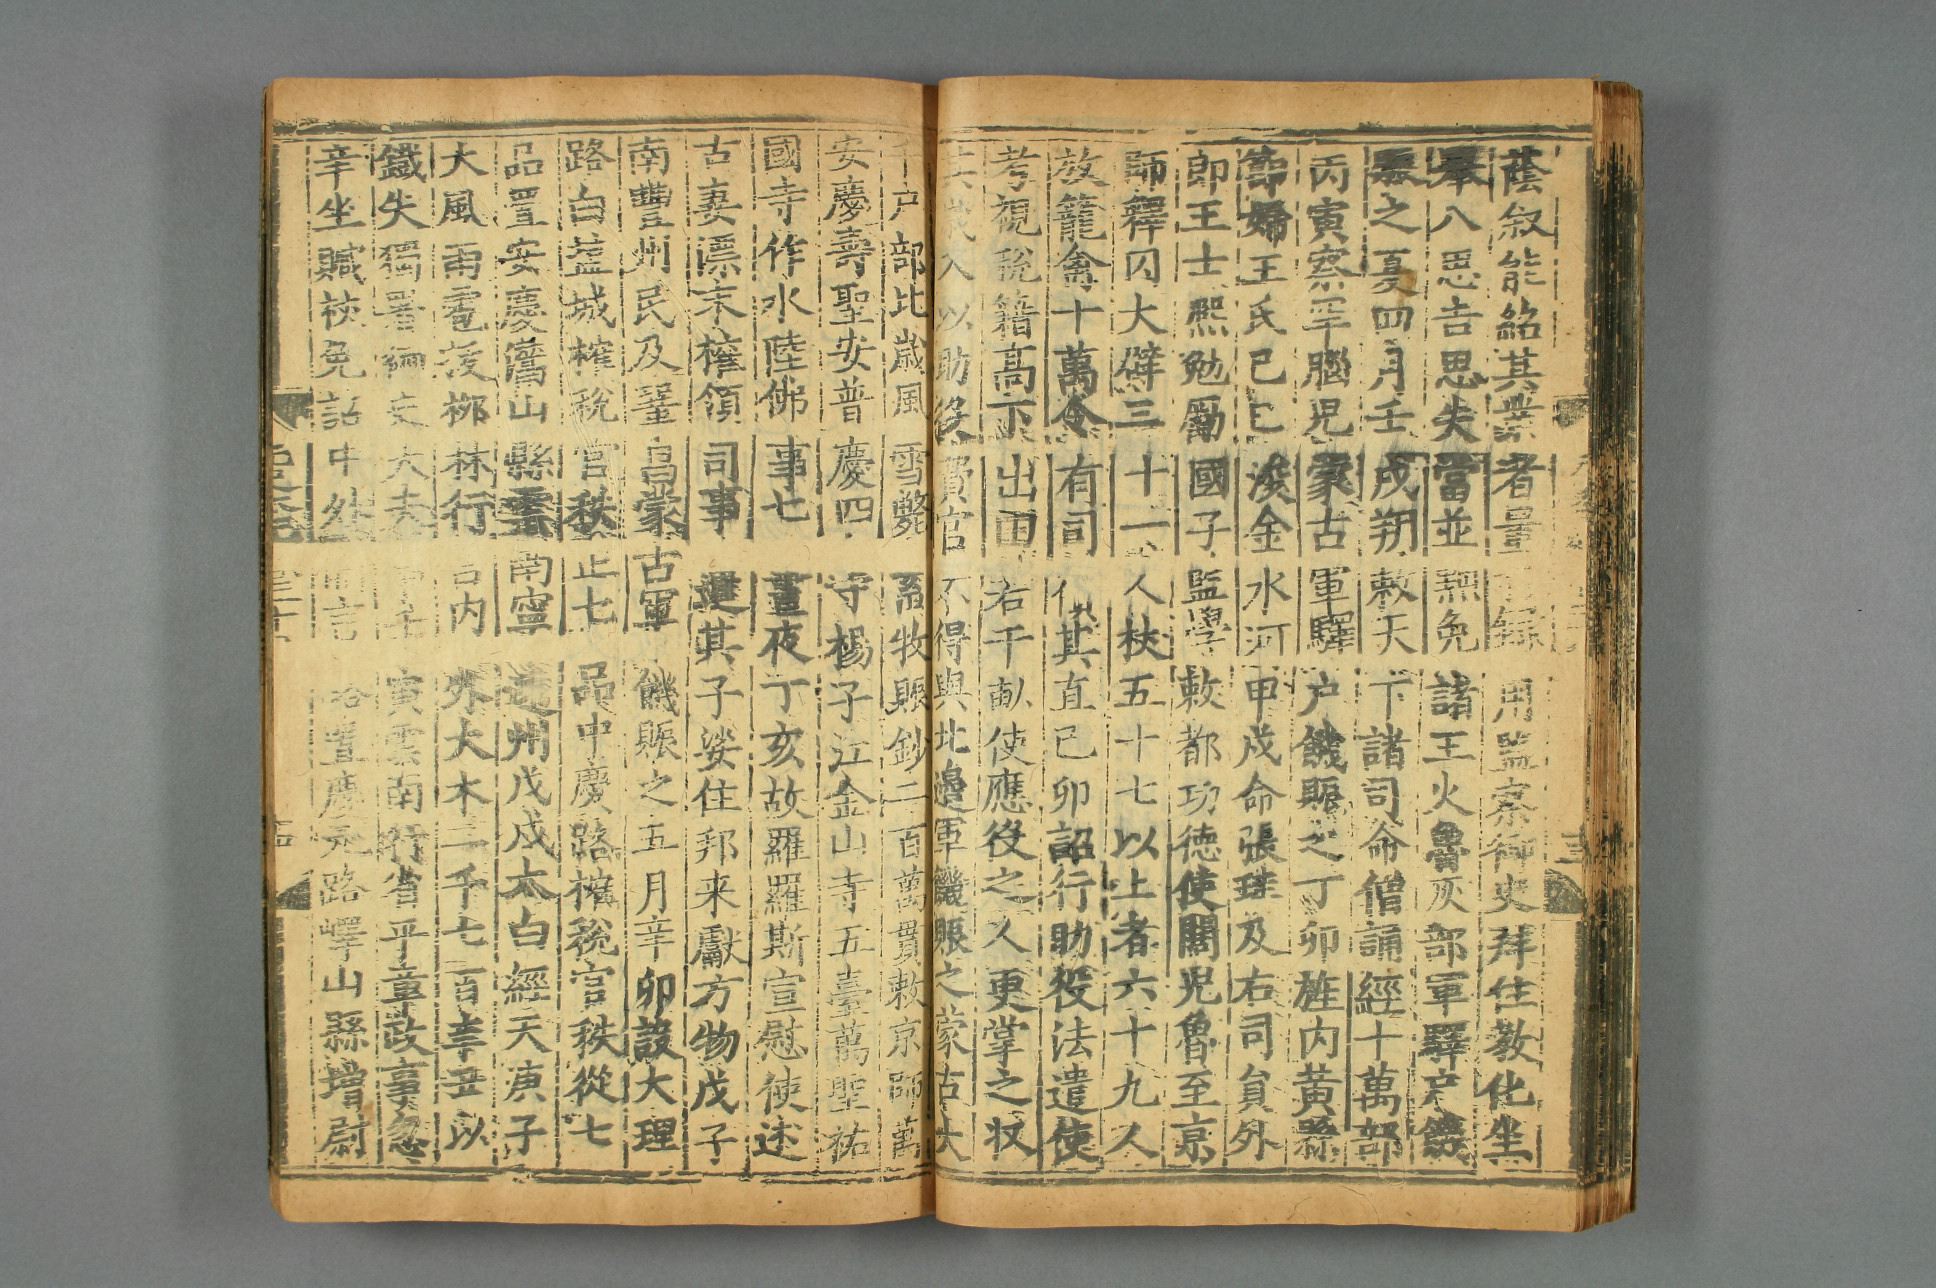 蔭叙能紹其業者量材録用監察御史拜住教化坐
舉八思吉思失當並黜免諸王火魯灰部軍驛户饑
賑之夏四月壬戌朔敕天下諸司命僧誦經十萬部
丙寅察罕腦兒蒙古軍驛户饑賑之丁卯旌内黄縣
節婦王氏己巳浚金水河甲戌命張珪及右司員外
郎王士熙勉勵國子監學敕都功德使闊兒魯至京
師釋囚大辟三十一人杖五十七以上者六十九人
放籠禽十萬令有司償其直己卯詔行助役法遣使
考視税籍高下出田若干畝使應役之人更掌之收
其歲入以助役費官不得與北邊軍饑賑之蒙古大
千户部比歲風雪斃畜牧賑鈔二百萬貫敕京師萬
安慶壽聖安普慶四寺楊子江金山寺五臺萬聖祐
國寺作水陸佛事七晝夜丁亥故羅羅斯宣慰使述
古妻漂末權領司事遣其子娑住邦来獻方物戊子
南豐州民及鞏昌蒙古軍饑賑之五月辛卯設大理
路白塩城榷税官秩正七品中慶路榷税官秩從七
品置安慶灊山縣雲南寧遠州戊戌太白經天庚子
大風雨雹拔柳林行宮内外大木二千七百辛丑以
鐵失獨署御史大夫事壬寅雲南行省平章政事忽
辛坐贓杖免詔中外開言路置慶元路嶧山縣增尉